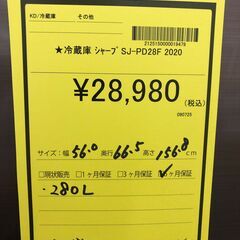 KD/冷蔵庫 その他
2125150000019479
★冷蔵庫 ｼｬｰﾌﾟ SJ-PD28F 2020
¥28,980
(税込)
090725
サイズ:幅 56.0 奥行 66.5 高さ 156.8 cm
□現状販売 □1ヶ月保証 □3ヶ月保証 □6ヶ月保証
・280L